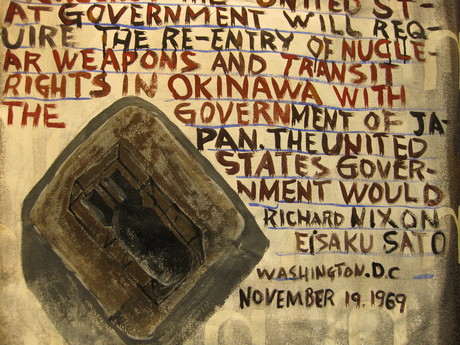 UNITED ST-
AT GOVERNMENT WILL REQ-
UIRE THE RE-ENTRY OF NUCLE-
AR WEAPONS AND TRANSIT
RIGHTS IN OKINAWA WITH
THE GOVERNMENT OF JA-
PAN. THE UNITED
STATES GOVER-
NMENT WOULD
RICHARD NIXON
EiSAKU SATO
WASHINGTON.D.C
NOVEMBER 19.1969